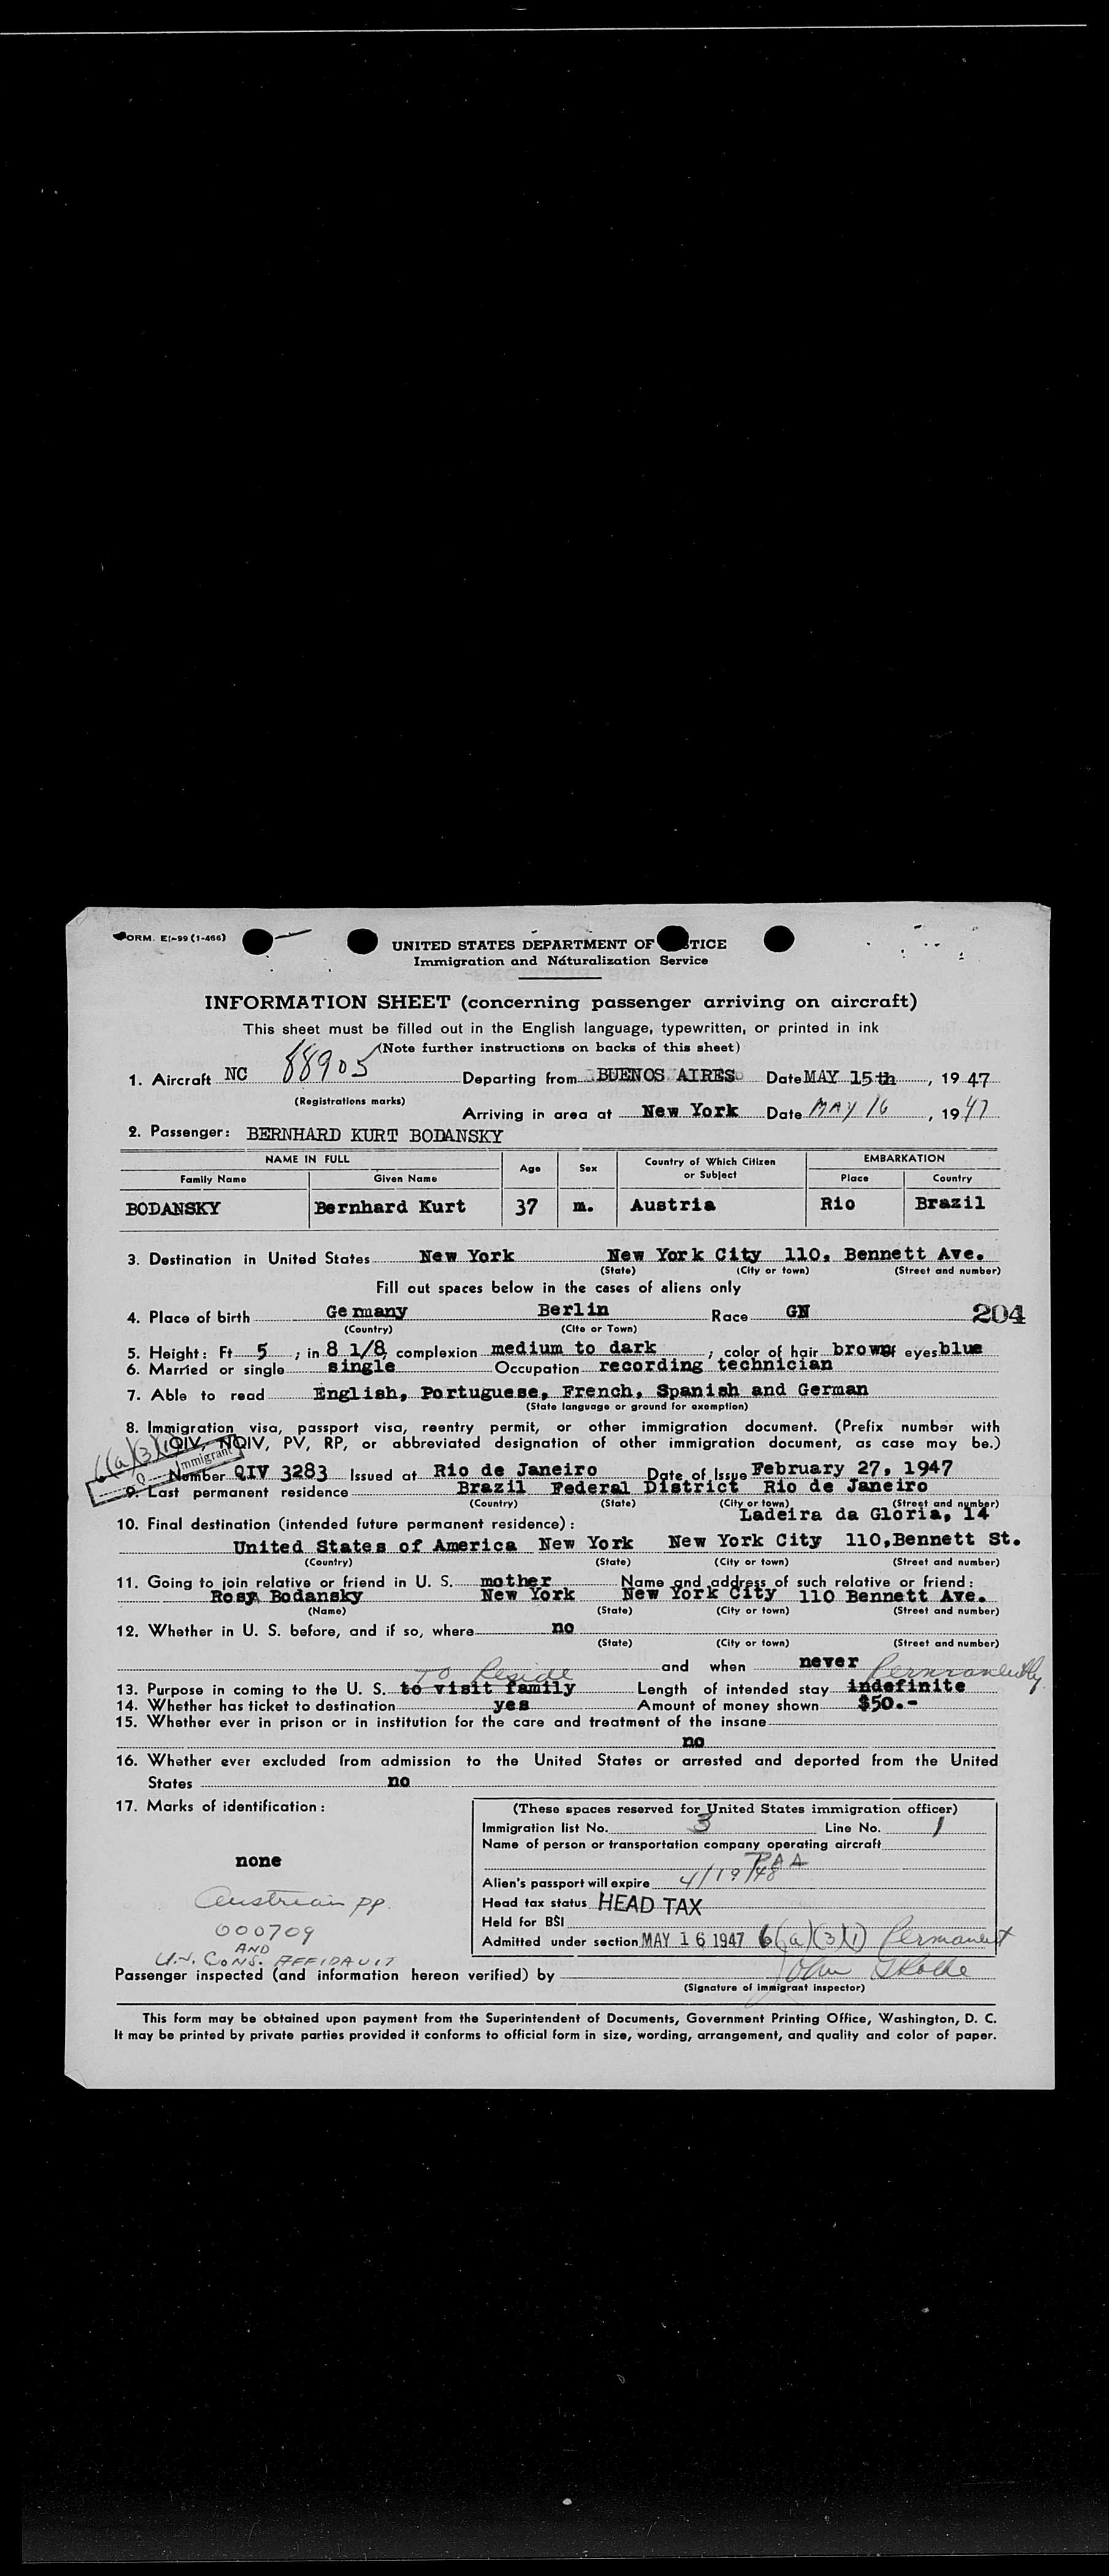 FORM. EI-99 (1-466)
UNITED STATES DEPARTMENT OF TICE
Immigration and Naturalization Service
INFORMATION SHEET (concerning passenger arriving on aircraft)
This sheet must be filled out in the English language, typewritten, or printed in ink
(Note further instructions on backs of this sheet)
1. Aircraft NC 88905 Departing from BUENOS AIRES Date MAY 15th, 1947
(Registrations marks)
Arriving in area at New York Date MAY 16, 1947
2. Passenger: BERNHARD KURT BODANSKY
NAME IN FULL Age Sex Country of Which Citizen or Subject EMBARKATION
Family Name Given Name Place Country
BODANSKY Bernhard Kurt 37 m. Austria Rio Brazil
3. Destination in United States New York New York City 110, Bennett Ave.
(State) (City or town) (Street and number)
Fill out spaces below in the cases of aliens only
4. Place of birth Germany Berlin Race GN 204
(Country) (Cite or Town)
5. Height: Ft 5; in 8 1/8 complexion medium to dark; color of hair brown; eyes blue
6. Married or single single Occupation recording technician
7. Able to read English, Portuguese, French, Spanish and German
(State language or ground for exemption)
8. Immigration visa, passport visa, reentry permit, or other immigration document. (Prefix number with
QIV, NQIV, PV, RP, or abbreviated designation of other immigration document, as case may be.)
6(a)(3)(1)
Immigrant
Number QIV 3283 Issued at Rio de Janeiro Date of Issue February 27, 1947
9. Last permanent residence Brazil Federal District Rio de Janeiro
(Country) (State) (City or town) (Street and number)
Ladeira da Gloria, 14
10. Final destination (intended future permanent residence):
United States of America New York New York City 110,Bennett St.
(Country) (State) (City or town) (Street and number)
11. Going to join relative or friend in U. S. mother Name and address of such relative or friend:
Rosy Bodansky New York New York City 110 Bennett Ave.
(Name) (State) (City or town) (Street and number)
12. Whether in U. S. before, and if so, where no
(State) (City or town) (Street and number)
and when never
To Reside Permanently
13. Purpose in coming to the U. S. to visit family Length of intended stay indefinite
14. Whether has ticket to destination yes Amount of money shown $50.-
15. Whether ever in prison or in institution for the care and treatment of the insane
no
16. Whether ever excluded from admission to the United States or arrested and deported from the United
States no
17. Marks of identification:
none
Austrian pp.
000709
AND
U.N. CONS. AFFIDAVIT
(These spaces reserved for United States immigration officer)
Immigration list No. 3 Line No. 1
Name of person or transportation company operating aircraft
PAA
Alien's passport will expire 4/19/48
Head tax status HEAD TAX
Held for BSI
Admitted under section MAY 16 1947 6(a)(3)(1) Permanent
Passenger inspected (and information hereon verified) by John
(Signature of immigrant inspector)
This form may be obtained upon payment from the Superintendent of Documents, Government Printing Office, Washington, D. C.
It may be printed by private parties provided it conforms to official form in size, wording, arrangement, and quality and color of paper.